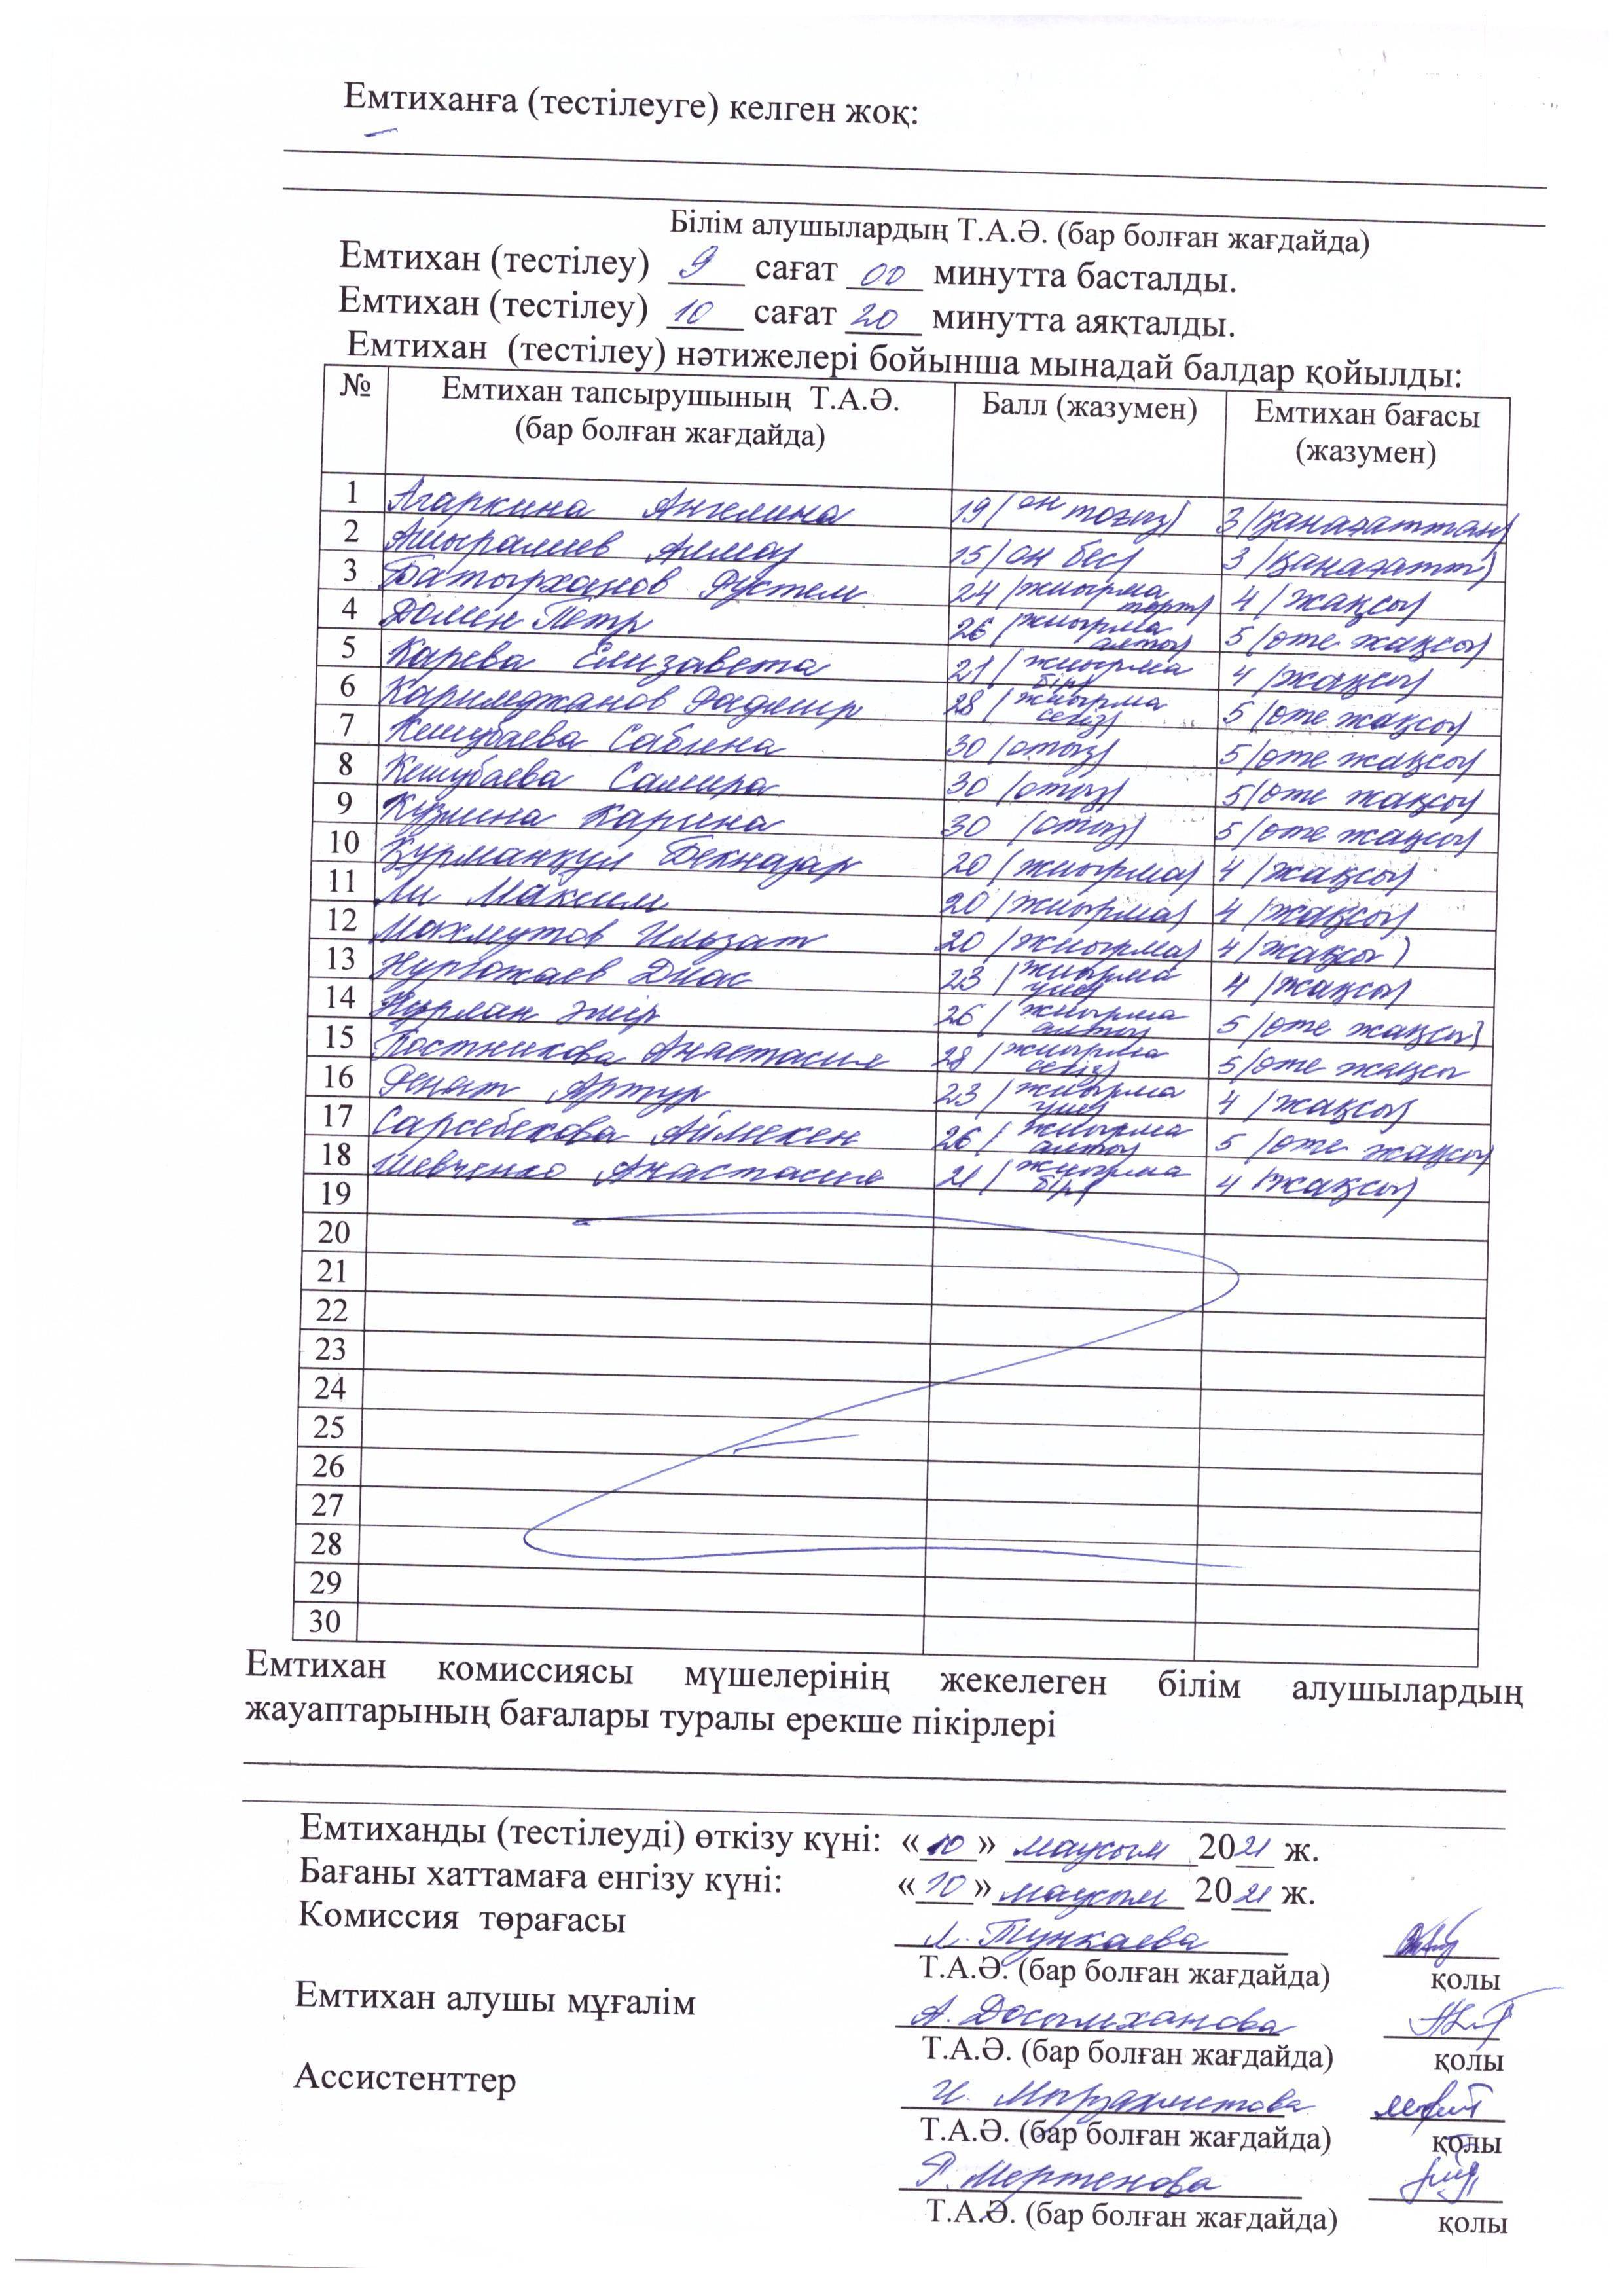 Емтиханға (тестілеуге) келген жоқ:
–
Білім алушылардың Т.А.Ә. (бар болған жағдайда)
Емтихан (тестілеу) 9 сағат 00 минутта басталды.
Емтихан (тестілеу) 10 сағат 20 минутта аяқталды.
Емтихан (тестілеу) нәтижелері бойынша мынадай балдар қойылды:
№ Емтихан тапсырушының Т.А.Ә. (бар болған жағдайда) Балл (жазумен) Емтихан бағасы (жазумен)
1 Агаркина Ангелина 19 (он тоғыз) 3 (қанағаттан)
2 Ашыралиев Алмаз 15 (он бес) 3 (қанағатт)
3 Батырханов Рүстем 24 (жиырма төрт) 4 (жақсы)
4 Домен Петр 26 (жиырма алты) 5 (өте жақсы)
5 Карева Елизавета 21 (жиырма бір) 4 (жақсы)
6 Каримджанов Радмир 28 (жиырма сегіз) 5 (өте жақсы)
7 Кешубаева Сабина 30 (отыз) 5 (өте жақсы)
8 Кешубаева Самира 30 (отыз) 5 (өте жақсы)
9 Кузмина Карина 30 (отыз) 5 (өте жақсы)
10 Құрманқұл Бекназар 20 (жиырма) 4 (жақсы)
11 Ли Максим 20 (жиырма) 4 (жақсы)
12 Махмутов Ильзат 20 (жиырма) 4 (жақсы)
13 Нургожаев Диас 23 (жиырма үш) 4 (жақсы)
14 Нұрлан Әмір 26 (жиырма алты) 5 (өте жақсы)
15 Постникова Анастасия 28 (жиырма сегіз) 5 (өте жақсы
16 Ренат Артур 23 (жиырма үш) 4 (жақсы)
17 Сарсебекова Аймекен 26 (жиырма алты) 5 (өте жақсы)
18 Шевченко Анастасия 21 (жиырма бір) 4 (жақсы)
19
20
21
22
23
24
25
26
27
28
29
30
Емтихан комиссиясы мүшелерінің жекелеген білім алушылардың
жауаптарының бағалары туралы ерекше пікірлері
Емтиханды (тестілеуді) өткізу күні: «10» маусым 2021 ж.
Бағаны хаттамаға енгізу күні: «10» маусым 2021 ж.
Комиссия төрағасы Л. Тункаева
Т.А.Ә. (бар болған жағдайда) қолы
Емтихан алушы мұғалім А. Досымханова
Т.А.Ә. (бар болған жағдайда) қолы
Ассистенттер И. Мырзахметова
Т.А.Ә. (бар болған жағдайда) қолы
Г. Мертенова
Т.А.Ә. (бар болған жағдайда) қолы